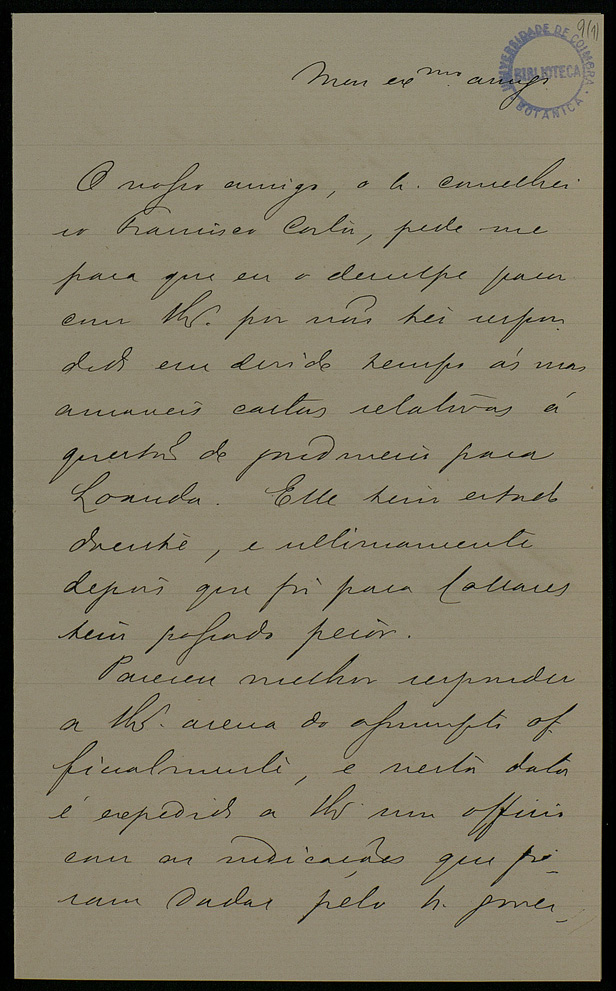 9(1)
UNIVERSIDADE DE COIMBRA
BIBLIOTECA
BOTANICA
Meu exmo. amigo
O nosso amigo, o sr. conselhei
ro Francisco Costa, pede-me
para que eu o desculpe para
com V. por não ter respon
dido em devido tempo ás mas
amaveis cartas relativas á
questão de para
Loanda. Elle tem estado
doente, e ultimamente
depois que foi para Collares
tem passado peior.
Pareceu melhor responder
a V. acerca do assumpto of
ficialmente, e nesta data
é expedido a V. um officio
com as indicações que fo-
ram dadas pelo sr. gover-